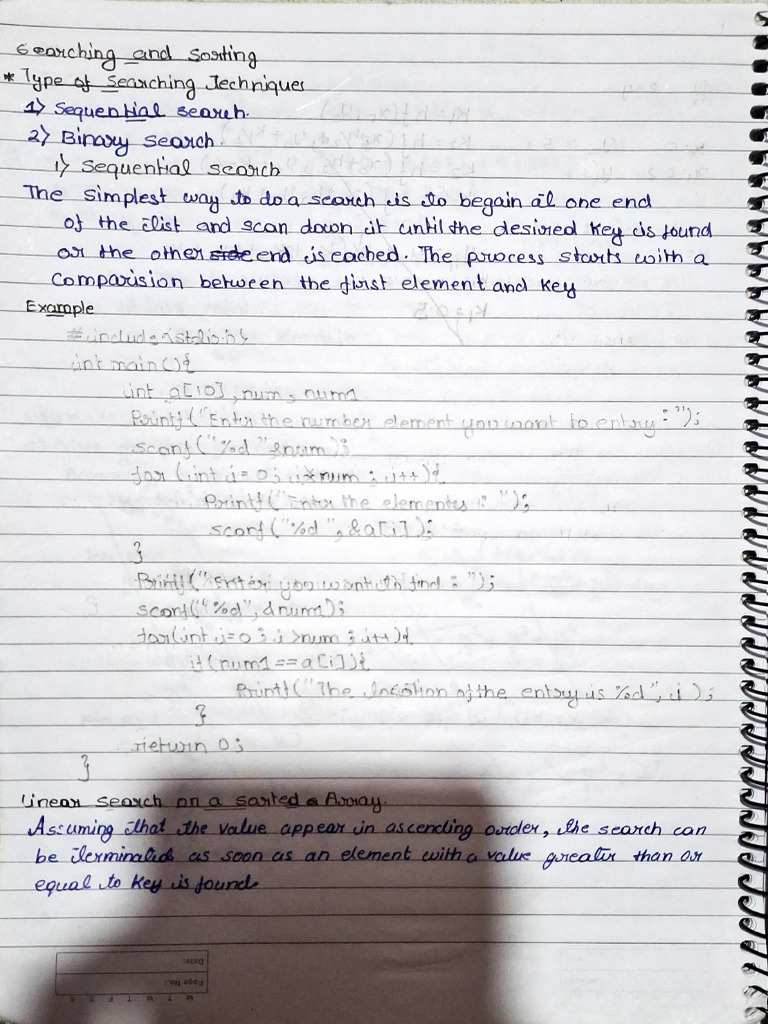 Searching and Sorting
* Type of Searching Techniques
1) Sequential search.
2) Binary search.
1) Sequential search
The simplest way to do a search is to begain at one end
of the list and scan down it until the desired key is found
or the other end is eached. The process starts with a
Comparision between the first element and key
Example
#include <stdio.h>
int main(){
int a[10], num, num1
Printf("Entr the number element you want to entry : ");
scanf("%d" &num);
for (int i = 0; i num ; i++){
Printf("Entr the elementes : ");
scanf("%d", &a[i]);
}
Printf("Enter you want find : ");
scanf("%d", &num1);
for(int i=0 ; i >num ; i++){
if(num1 == a[i]){
Printf("The location of the entry is %d", i );
}
return 0;
}
Linear search on a sarted a Array.
Assuming that the value appear in ascending order, the search can
be terminated as soon as an element with a value greater than or
equal to key is found.
Date:
Page No.:
M T W T F S S